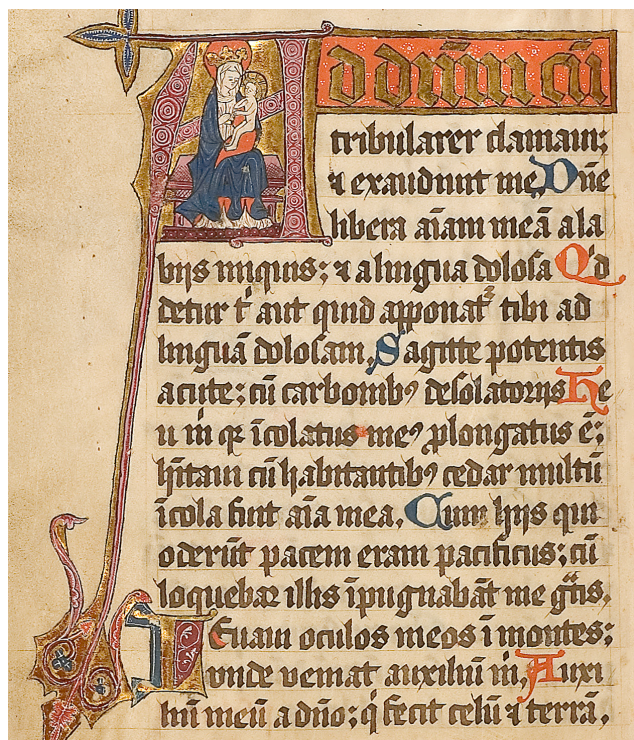 Ad dn̄m cū
tribularer clamaui;
⁊ exaudiuit me. Dn̄e
libera aīam meā a la
biis iniquis; ⁊ a lingua dolosa. Qͥd
detur tͥ aut quid apponatͬ tibi ad
linguā dolosam. Sagitte potentis
acute; cū carbonibꝰ desolatoriis. He
u m̄ qꝫ īcolatus meꝰ ꝓlongatus ē;
hītaui cū habitantibꝰ cedar multū
īcola fuit aīa mea. Cum hiis qui
oderūt pacem eram pacificus; cū
loquebar illis īpugnabāt me gͣtis.
Leuaui oculos meos ī montes;
vnde veniat auxiliū m̄. Auxi
liū meū a dn̄o; qͥ fecit celū ⁊ terrā.